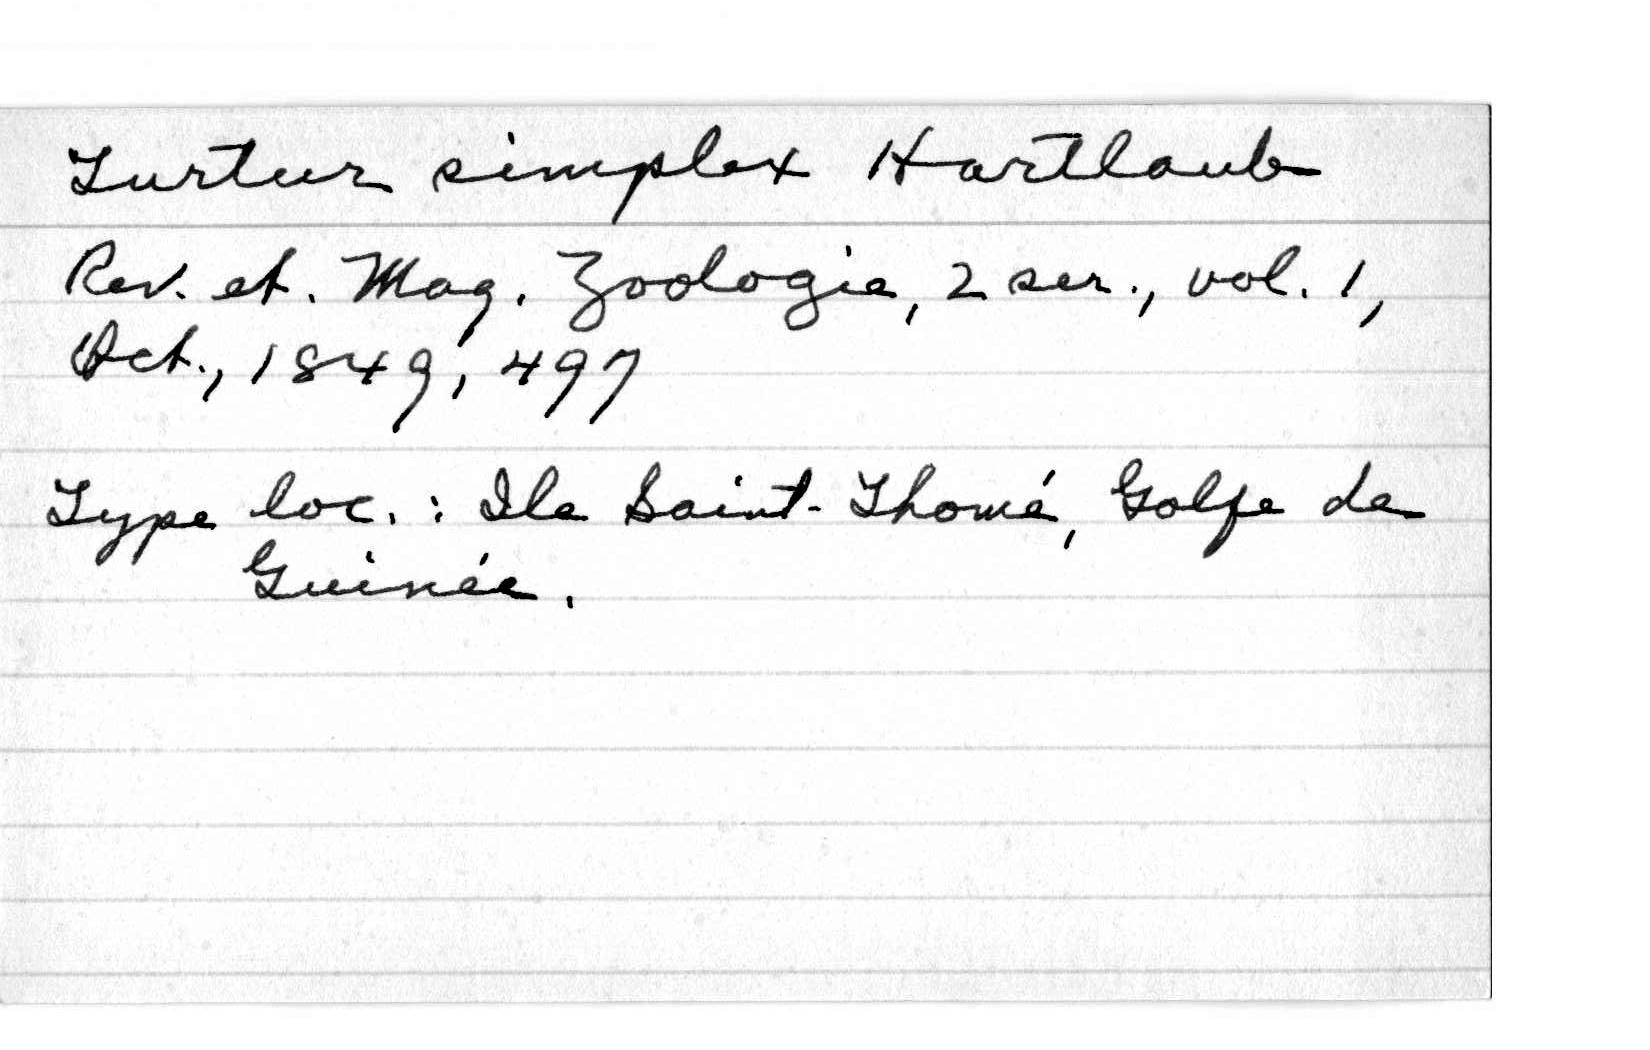 Turtur simplex Hartlaub
Rev. et. Mag. Zoologie, 2 ser., vol. 1,
Oct., 1849, 497
Type loc. : Ile Saint-Thomé, Golfe de
Guinée.